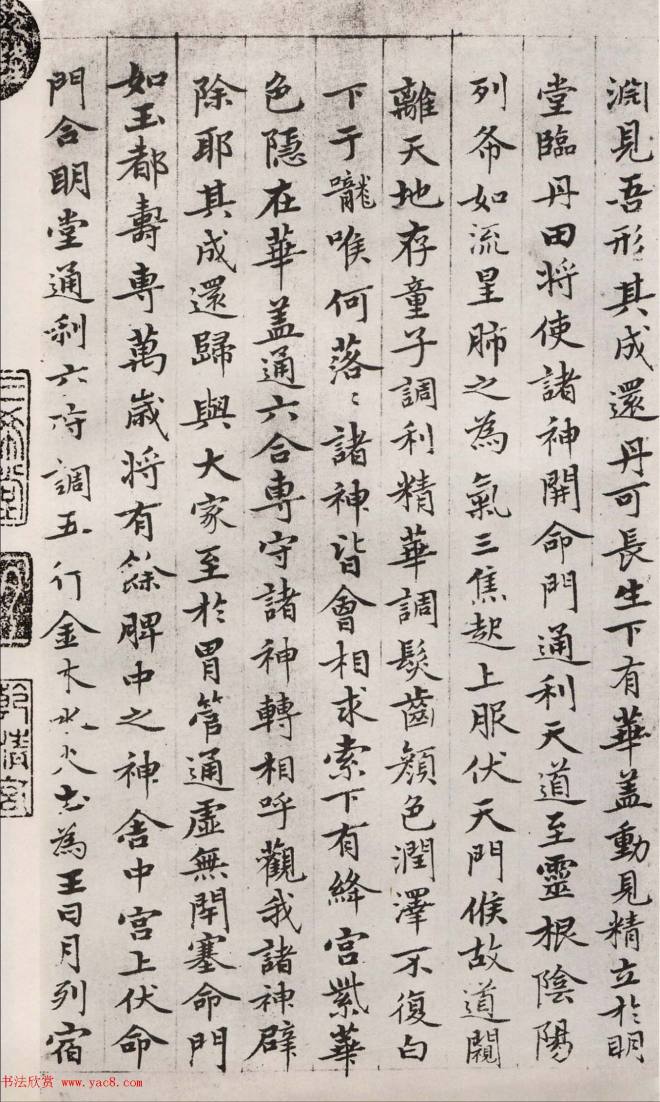 淵見吾形其成還丹可長生下有華盖動見精立於明
堂臨丹田将使諸神開命門通利天道至靈根陰陽
列布如流星肺之為氣三焦起上服伏天門候故道闚
離天地存童子調利精華調髮齒顏色潤澤不復白
下于嚨喉何落〻諸神皆會相求索下有絳宮紫華
色隱在華盖通六合専守諸神轉相呼觀我諸神辟
除耶其成還歸與大家至於胃管通虛無閇塞命門
如玉都壽専萬歲将有餘脾中之神舍中宮上伏命
門合明堂通利六府調五行金木水火土為王日月列宿
乾清宮
书法欣赏 www.yac8.com